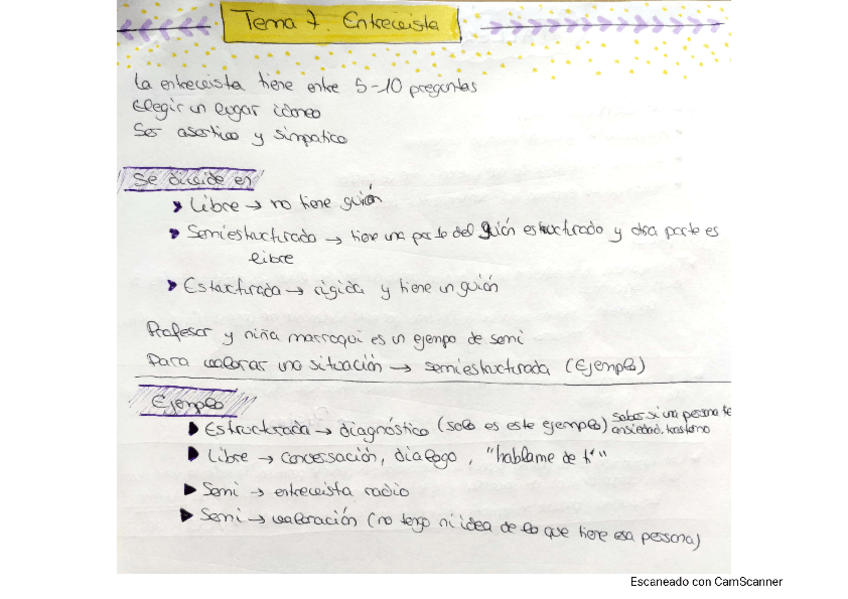 Tema 7. Entrevista
La entrevista tiene entre 5-10 preguntas
Elegir un lugar idoneo
Ser asertivo y simpatico
Se divide en
Libre → no tiene guión
Semiestructurado → tiene una parte del guión estructurado y otra parte es
libre
Estructurada → rigida y tiene un guión
Profesor y niña marroqui es un ejempo de semi
Para valorar una situación → semiestructurada (Ejemplo)
Ejemplo
Estructurada → diagnóstico (solo es este ejemplo) saber si una persona te
ansiedad, trastorno
Libre → conversación, dialogo, "hablame de ti"
Semi → entrevista radio
Semi → valoración (no tengo ni idea de lo que tiene esa persona)
Escaneado con CamScanner